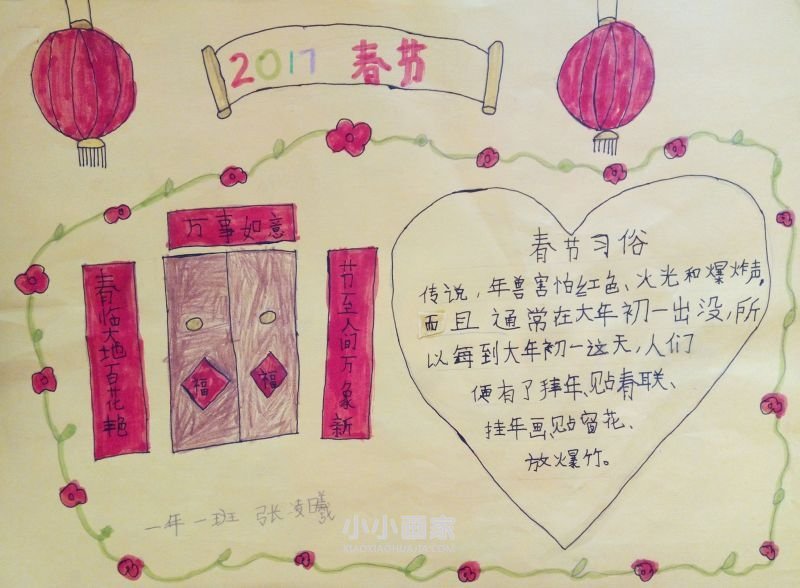 2017 春节
万事如意
春临大地百花艳
节至人间万象新
福
福
春节习俗
传说，年兽害怕红色、火光和爆炸声，
而且通常在大年初一出没，所
以每到大年初一这天，人们
便有了拜年、贴春联、
挂年画、贴窗花、
放爆竹。
一年一班 张凌曦
小小画家
XIAOXIAOHUAJIA.COM